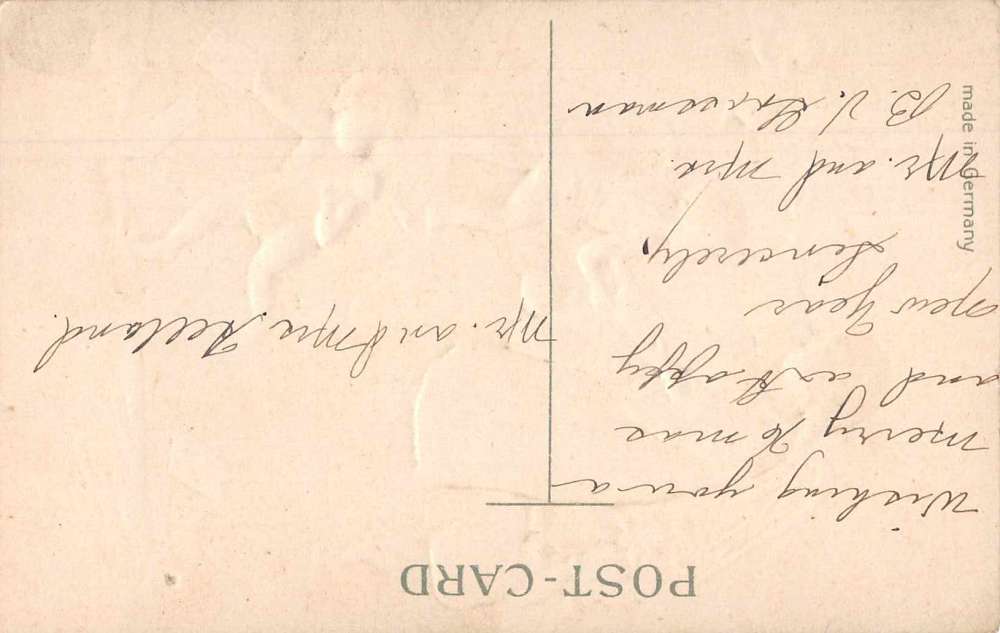 POST-CARD
Wishing you a
merry Xmas
and a Happy
New Year
Sincerely,
Mr. and Mrs.
B. V.
Mr. and Mrs.
made in Germany